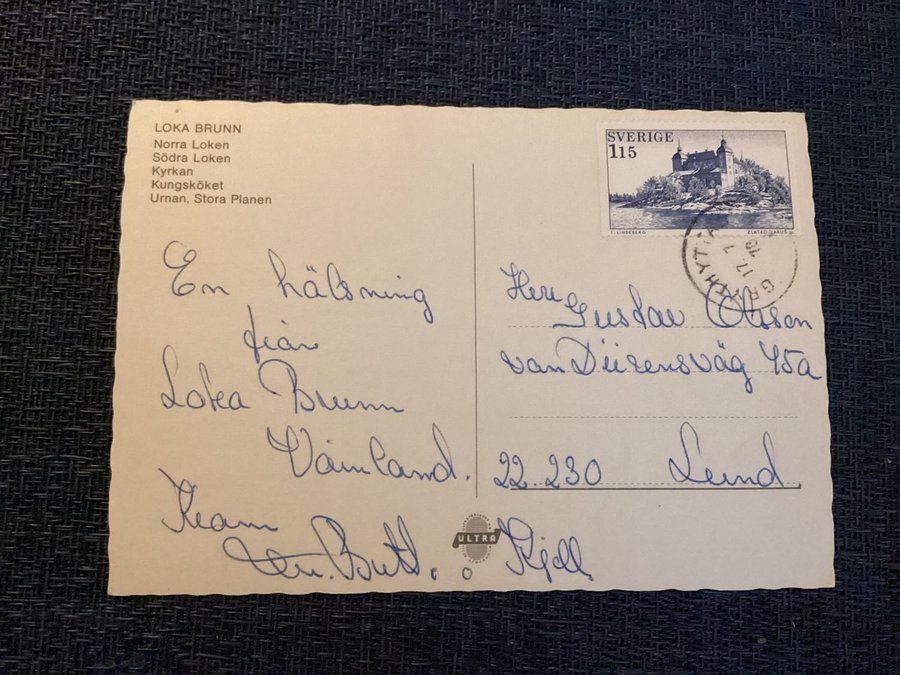 LOKA BRUNN
Norra Loken
Södra Loken
Kyrkan
Kungsköket
Urnan, Stora Planen
SVERIGE
115
T. LINDEBERG ZLATKO JAKUS
17 7
En hälsning
från
Loka Brunn
Värmland.
Kram
Britt. o Kjell
ULTRA
Herr Gustav Olsson
van Dürensväg 45a
22.230 Lund